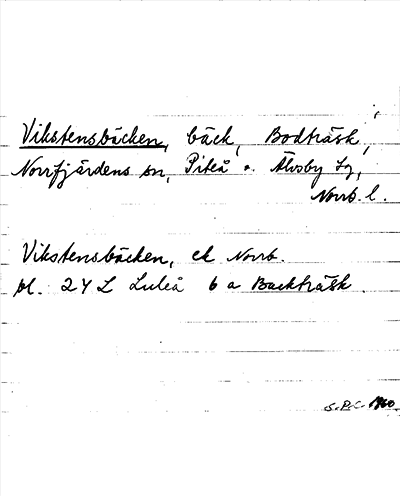 Vikstensbäcken, bäck, Bodträsk,
Norrfjärdens sn, Piteå o. Älvsby tg,
Norrb. l.
Vikstensbäcken, ek Norrb.
bl. 24 L Luleå 6 a Backträsk.
S.P.C. 1960